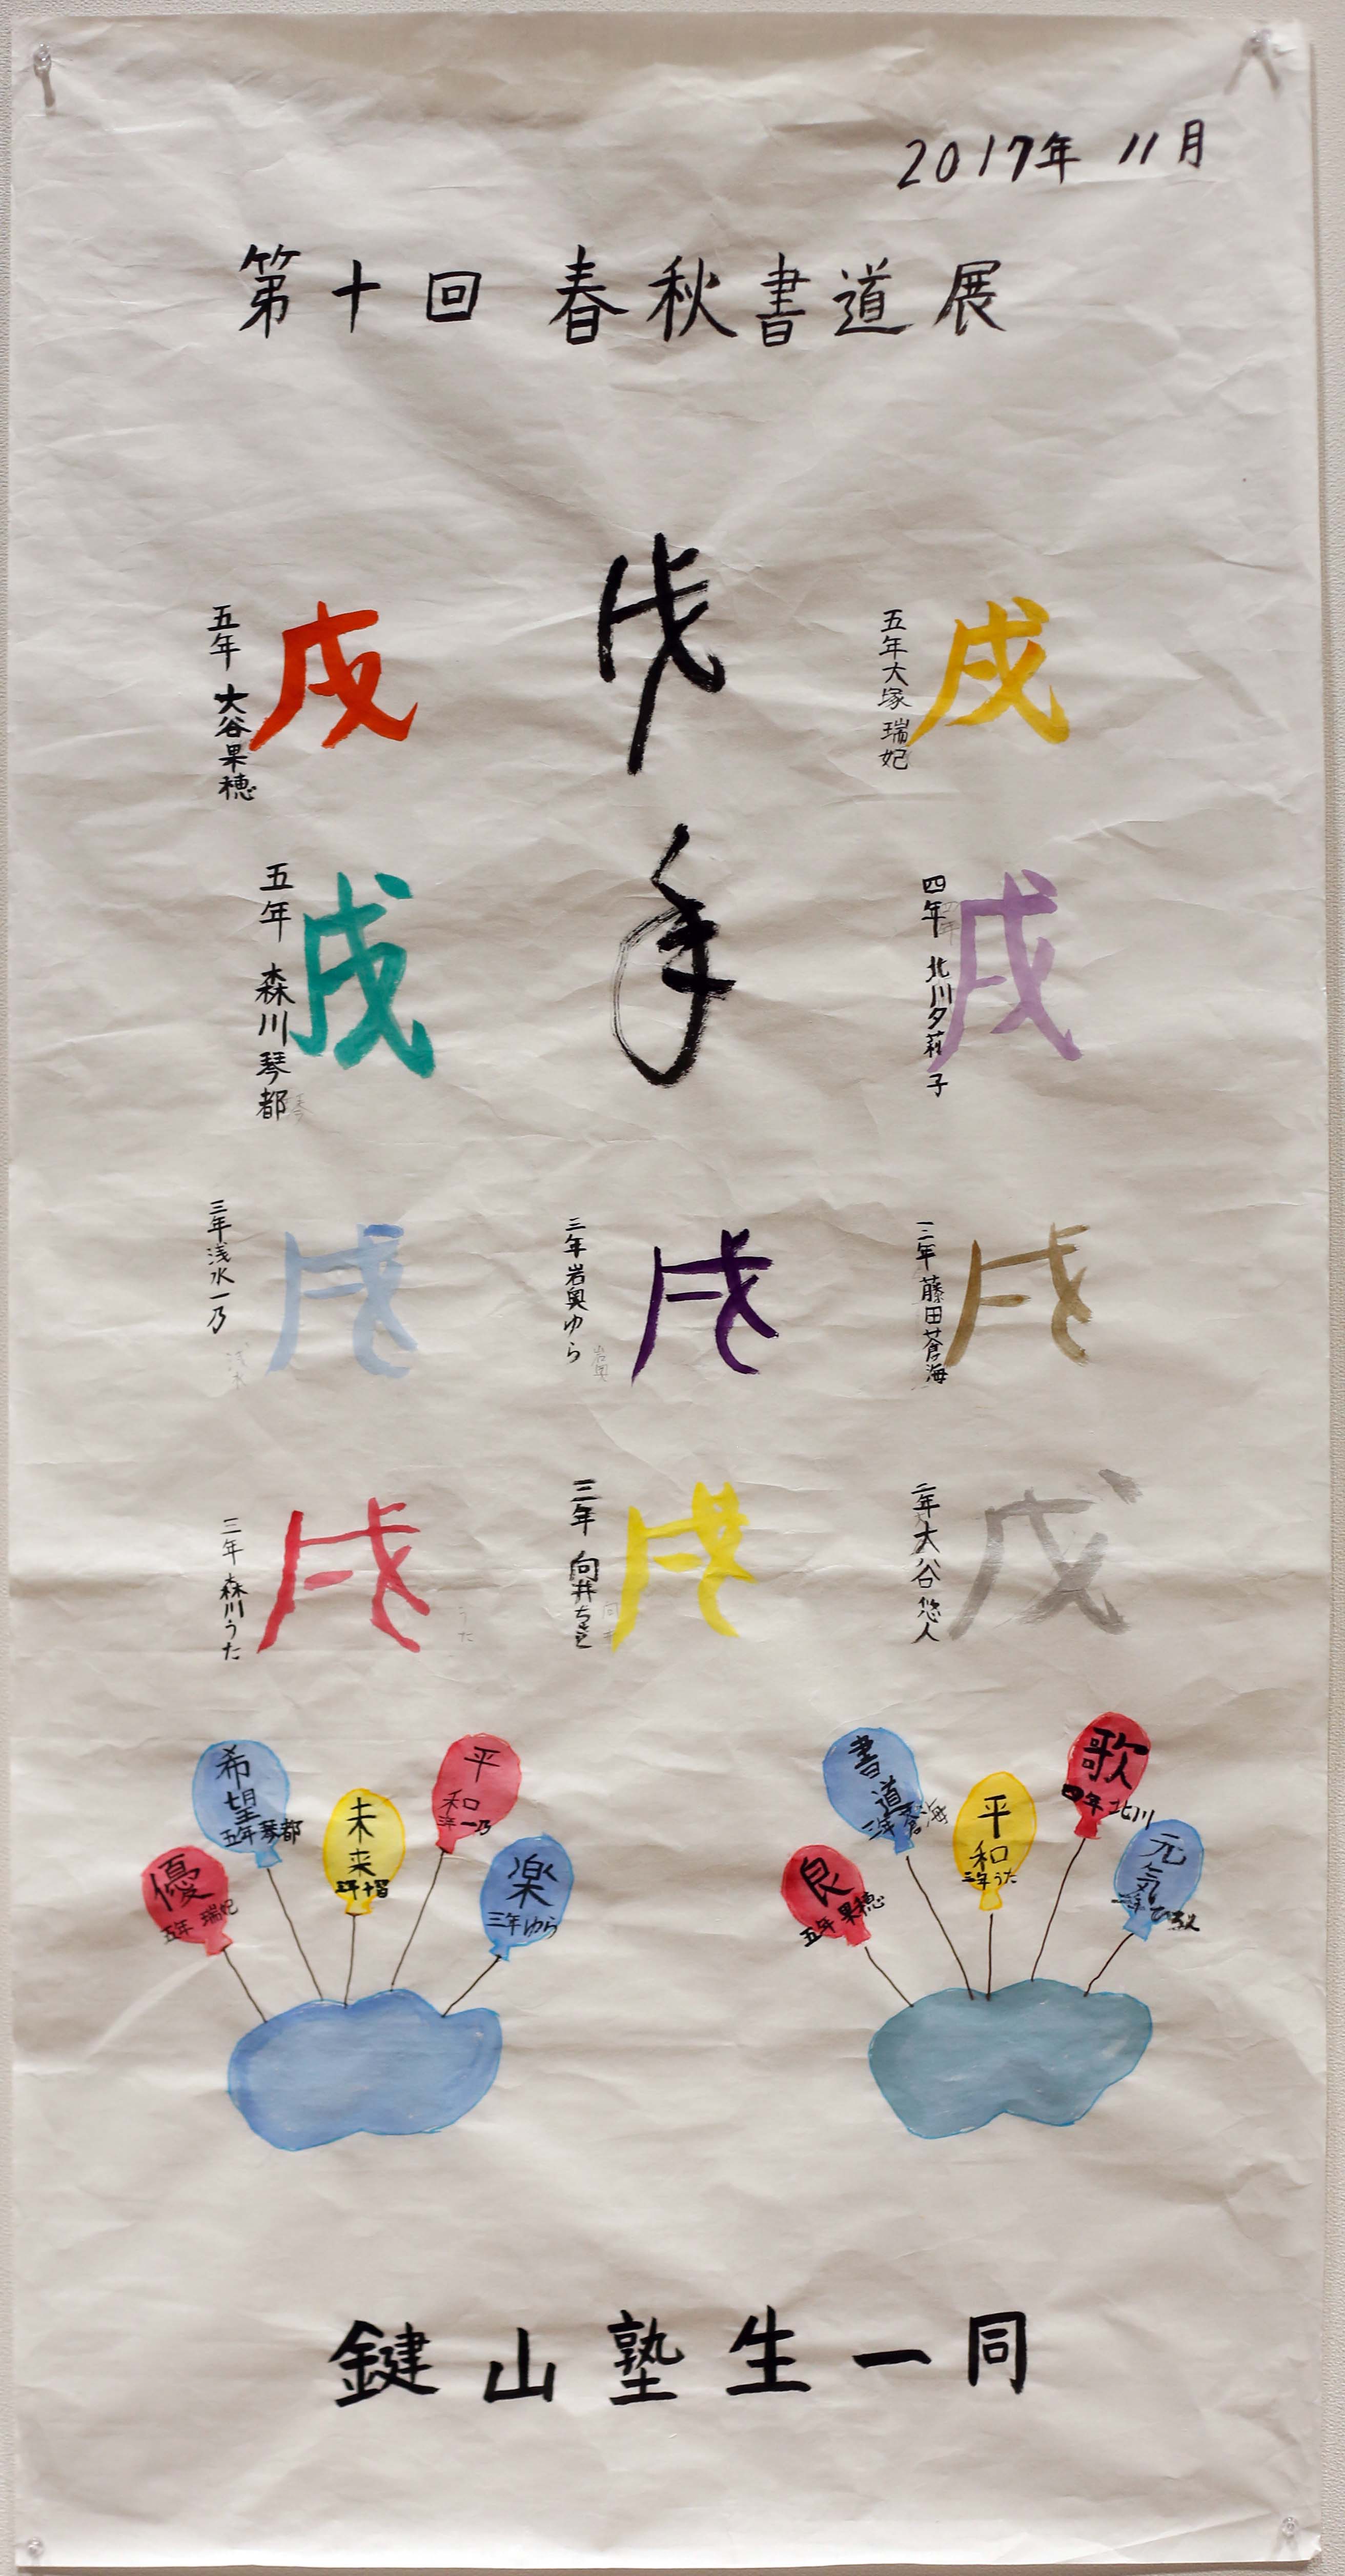 2017年 11月
第十回 春秋書道展
戌年
戌
五年 大谷果穂
戌
五年 大塚 瑞妃
戌
五年 森川琴都
戌
四年 北川夕莉子
戌
三年 浅水一乃
戌
三年 岩奥ゆら
戌
三年 藤田蒼海
戌
三年 森川うた
戌
三年 向井
戌
二年 大谷悠人
優
五年 瑞妃
希望
五年 琴都
未来
平和
三年 一乃
楽
三年 ゆら
良
五年 果穂
書道
三年 蒼海
平和
三年 うた
歌
四年 北川
元気
鍵山塾生一同